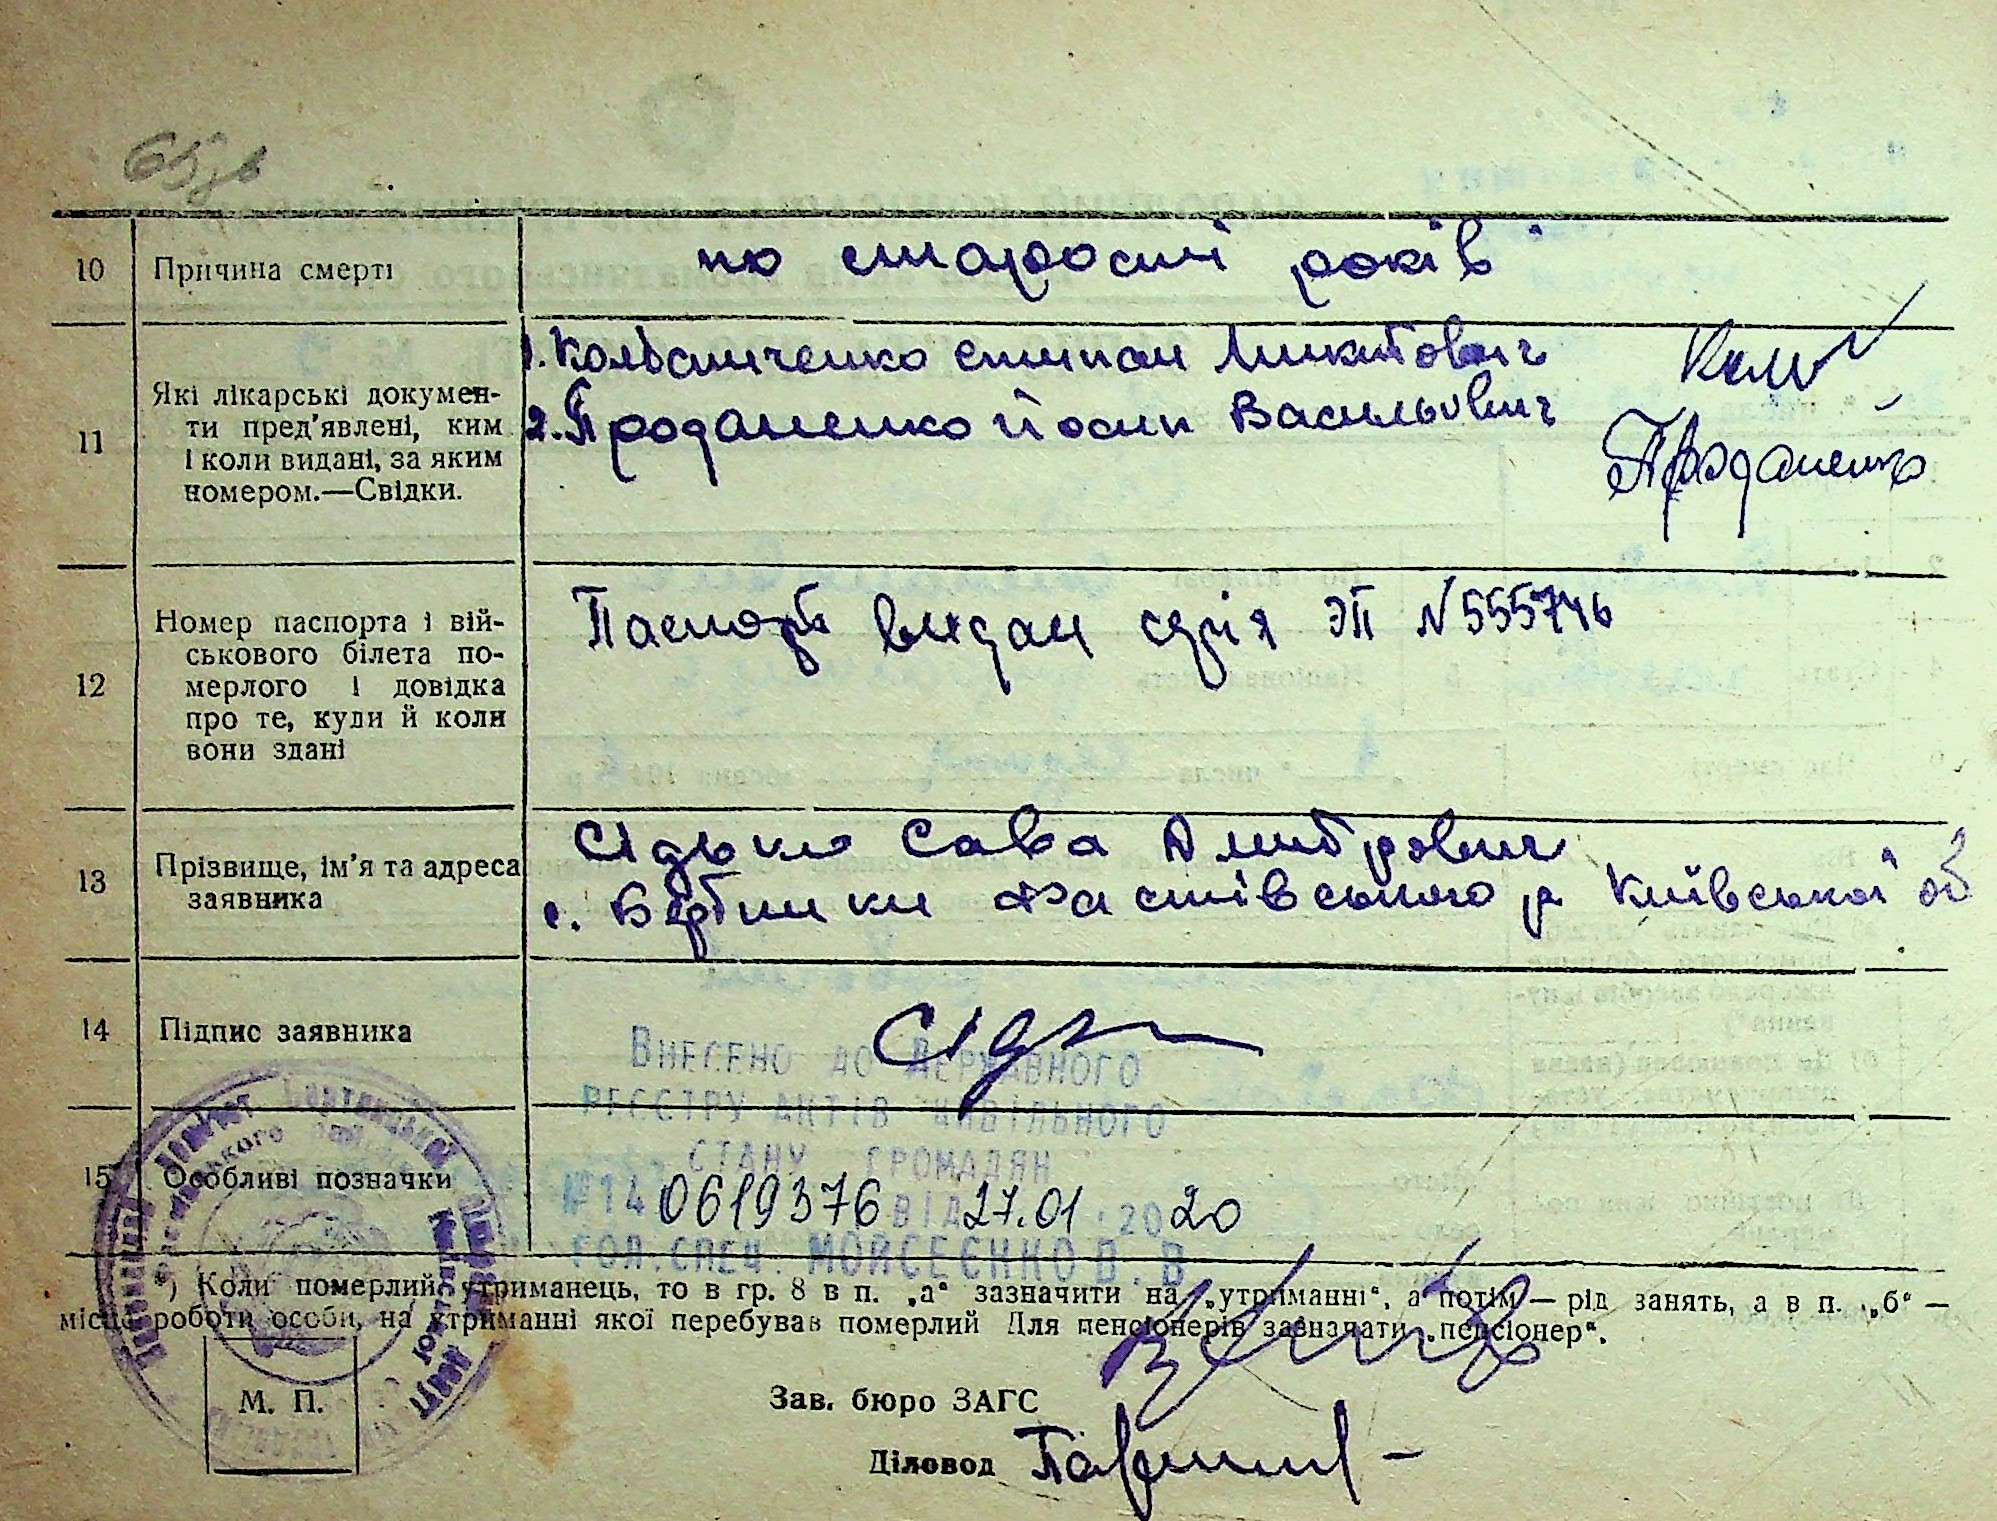 10 Причина смерті
по старості років
11 Які лікарські докумен-
ти пред'явлені, ким
і коли видані, за яким
номером.—Свідки.
1. Микитович
2. Проданенко Йосип Васильович
Проданенко
12 Номер паспорта і вій-
ськового білета по-
мерлого і довідка
про те, куди й коли
вони здані
Паспорт видан серія ЭП №555746
13 Прізвище, ім'я та адреса
заявника
Сідько Сава Дмитрович
с. Фастівського р Київської об
14 Підпис заявника
Внесено до Державного
реєстру актів цивільного
стану громадян
15 Особливі позначки
№14 0619376 від 27.01.2020
гол.спец. Мойсеєнко В.В
*) Коли померлий утриманець, то в гр. 8 в п. „а“ зазначити на „утриманні“, а потім — рід занять, а в п. „б“ —
місце роботи особи, на утриманні якої перебував померлий Для пенсіонерів зазначати „пенсіонер“.
М. П.
Зав. бюро ЗАГС
Діловод